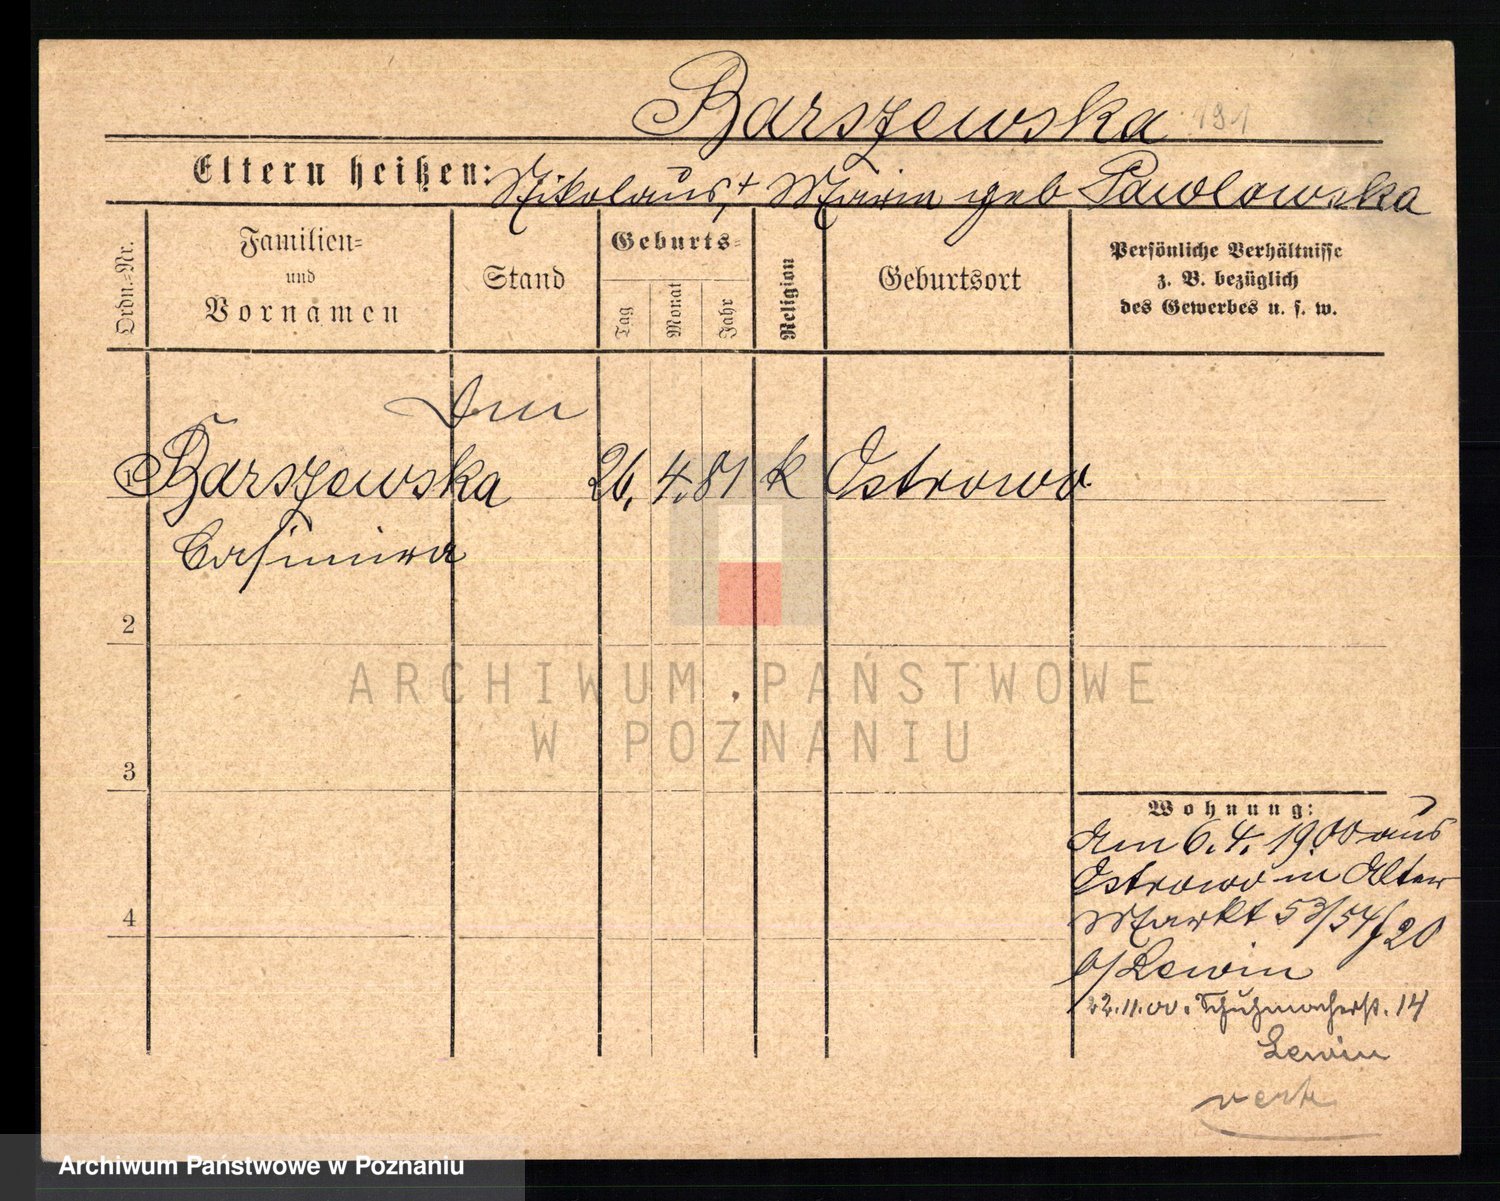 Barszewska 191
Eltern heißen: Nikolaus,+ Maria geb Pawlowska
Ordn.-Nr.
Familien-
und
Vornamen
Stand
Geburts-
Tag
Monat
Jahr
Religion
Geburtsort
Persönliche Verhältnisse
z. B. bezüglich
des Gewerbes u. s. w.
1 Barszewska 26. 4. 81 k Ostrowo
Casimira
2
3
4
Wohnung:
Am 6. 4. 1900 aus
Ostrowo in Alter
Markt 53/54 f 20
b/ Lewin
22.11.00. Schuhmacherst. 14
Lewin
ARCHIWUM PAŃSTWOWE
W POZNANIU
Archiwum Państwowe w Poznaniu